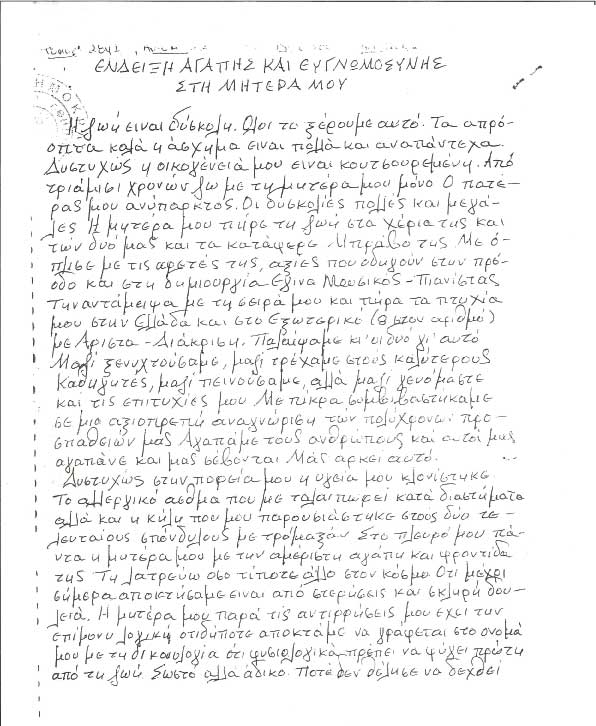 ΕΝΔΕΙΞΗ ΑΓΑΠΗΣ ΚΑΙ ΕΥΓΝΩΜΟΣΥΝΗΣ
ΣΤΗ ΜΗΤΕΡΑ ΜΟΥ
Η ζωή ειναι δύσκολη. Ολοι το ξέρουμε αυτό. Τα απρό-
οπτα καλά η άσχημα ειναι πολλά και αναπάντεχα.
Δυστυχώς η οικογένειά μου ειναι κουτσουρεμένη. Από
τριάμισι χρονών ζω με τη μητέρα μου μόνο Ο πατέ-
ρας μου ανύπαρκτος. Οι δυσκολίες πολλές και μεγά-
λες Η μητέρα μου πήρε τη ζωή στα χέρια της και
των δυό μας και τα κατάφερε Μπράβο της Με ό-
πλισε με τις αρετές της, αξίες που οδηγούν στην πρό-
οδο και στη δημιουργία Εγινα Μουσικός - Πιανίστας
Την αντάμειψα με τη σειρά μου και πήρα τα πτυχία
μου στην Ελλάδα και στο Εξωτερικό (8 στον αριθμό)
με Αριστα - Διάκριση. Παλαίψαμε κι οι δυό γι' αυτό
Μαζί ξενυχτούσαμε, μαζί τρέχαμε στους καλύτερους
Καθηγητές, μαζί πεινούσαμε, αλλά μαζί γευόμαστε
και τις επιτυχίες μου Με πίκρα συμβιβαστήκαμε
σε μια αξιοπρεπή αναγνώριση των πολύχρονων προ-
σπαθειών μας Αγαπάμε τους ανθρώπους και αυτοί μας
αγαπάνε και μας σέβονται Μάς αρκεί αυτό.
Δυστυχώς στην πορεία μου η υγεία μου κλονίστηκε
Το αλλεργικό ασθμα που με ταλαιπωρεί κατά διαστήματα
αλλά και η κήλη που μου παρουσιάστηκε στους δύο τε-
λευταίους σπόνδυλους με τρόμαξαν Στο πλευρό μου πά-
ντα η μητέρα μου με την αμέριστη αγάπη και φροντίδα
της Τη λατρεύω οσο τίποτε άλλο στον κόσμο Οτι μέχρι
σήμερα αποκτήσαμε ειναι από στερήσεις και σκληρή δου-
λειά. Η μητέρα μου παρά τις αντιρρήσεις μου εχει την
επίμονη λογική οτιδήποτε αποκτάμε να γράφεται στο ονομά
μου με τη δικαιολογία ότι φυσιολογικά πρέπει να φύγει πρώτη
από τη ζωή. Σωστο αλλά άδικο. Ποτέ δεν θέλησε να δεχθεί